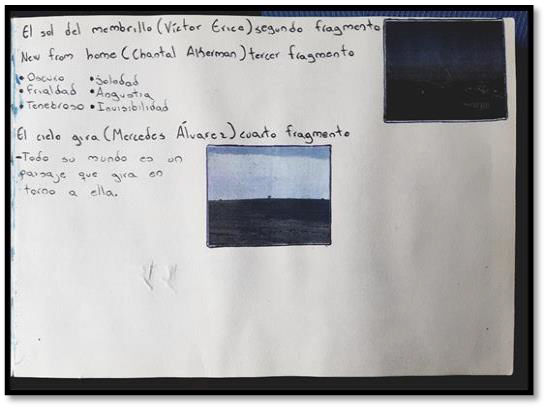 El sol del membrillo (Víctor Erice) segundo fragmento
New from home (Chantal Akerman) tercer fragmento
• Oscuro • Soledad
• Frialdad • Angustia
• Tenebroso • Invisibilidad
El cielo gira (Mercedes Álvarez) cuarto fragmento
- Todo su mundo es un
paisaje que gira en
torno a ella.